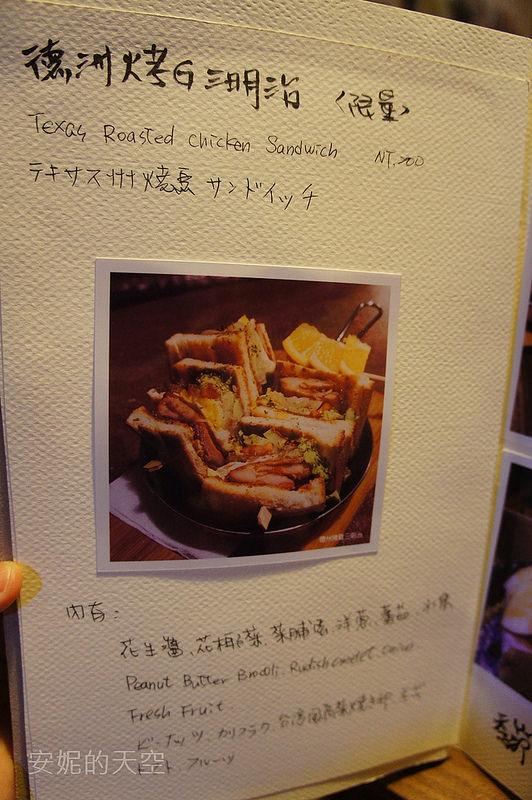 德洲烤G三明治 〈限量〉
Texas Roasted chicken Sandwich NT.200
テキサス州焼 サンドイッチ
德州烤雞三明治
內有：
花生醬、花椰菜、菜脯蛋、洋蔥、蕃茄、水果
Peanut Butter Brocoli. Rudish omelet. onion
Fresh Fruit.
ピーナッツ、カリフラワ、台湾風
トマト フルーツ
安妮的天空